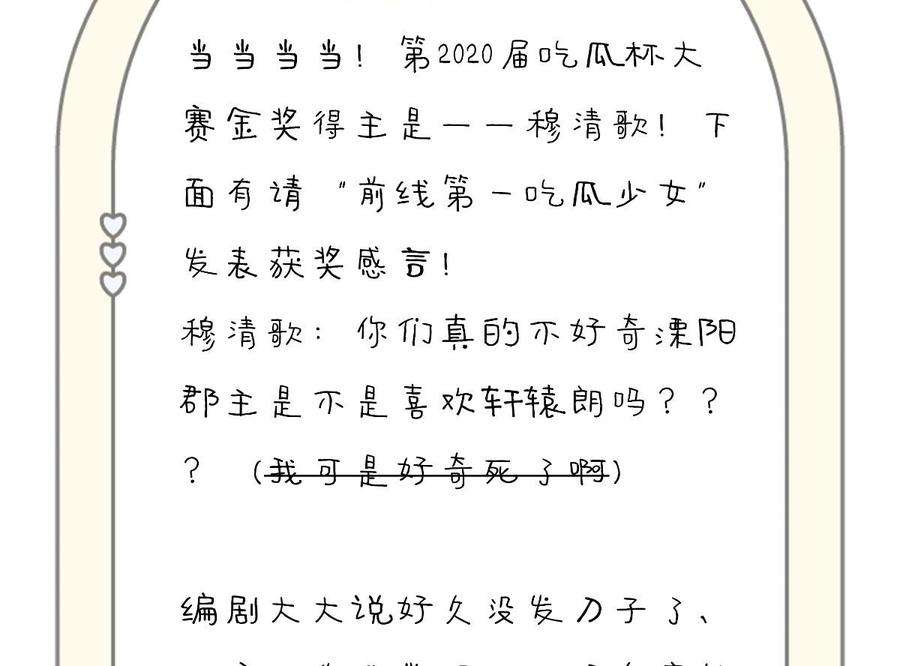 当当当当！第2020届吃瓜杯大
赛金奖得主是一一穆清歌！下
面有请“前线第一吃瓜少女”
发表获奖感言！
穆清歌：你们真的不好奇溧阳
郡主是不是喜欢轩辕朗吗？？
？（我可是好奇死了啊）
编剧大大说好久没发刀子了、